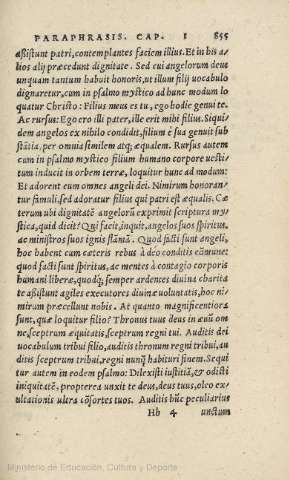 PARAPHRASIS. CAP. I 855
aßistunt patri, contemplantes faciem illius. Et in his a-
lios alij præcedunt dignitate. Sed cui angelorum deus
unquam tantum habuit honoris, ut illum filij uocabulo
dignaretur, cum in psalmo mystico ad hunc modum lo
quatur Christo: Filius meus es tu, ego hodie genui te.
Ac rursus: Ego ero illi pater, ille erit mihi filius. Siqui-
dem angelos ex nihilo condidit, filium è sua genuit sub
stātia, per omnia similem atq; æqualem. Rursus autem
cum in psalmo mystico filium humano corpore uesti-
tum inducit in orbem terræ, loquitur hunc ad modum:
Et adorent eum omnes angeli dei. Nimirum honoran-
tur famuli, sed adoratur filius qui patri est æqualis. Cæ
terum ubi dignitatē angelorū exprimit scriptura my-
stica, quid dicit? Qui facit, inquit, angelos suos spiritus,
ac ministros suos ignis flāmā. Quod facti sunt angeli,
hoc habent cum cæteris rebus à deo conditis cōmune:
quod facti sunt spiritus, ac mentes à contagio corporis
humani liberæ, quodq; semper ardentes diuina charita
te aßistunt agiles executores diuinæ uoluntatis, hoc ni-
mirum præcellunt nobis. At quanto magnificentiora
sunt, quæ loquitur filio? Thronus tuus deus in æuū om
ne, sceptrum æquitatis, sceptrum regni tui. Auditis dei
uocabulum tribui filio, auditis thronum regni tribui, au
ditis sceptrum tribui, regni nunq̃ habituri finem. Sequi
tur autem in eodem psalmo: Dilexisti iustitiā, & odisti
iniquitatē, propterea unxit te deus, deus tuus, oleo ex-
ultationis ultra cōsortes tuos. Auditis hūc peculiarius
Hh 4 unctum
Ministerio de Educación, Cultura y Deporte